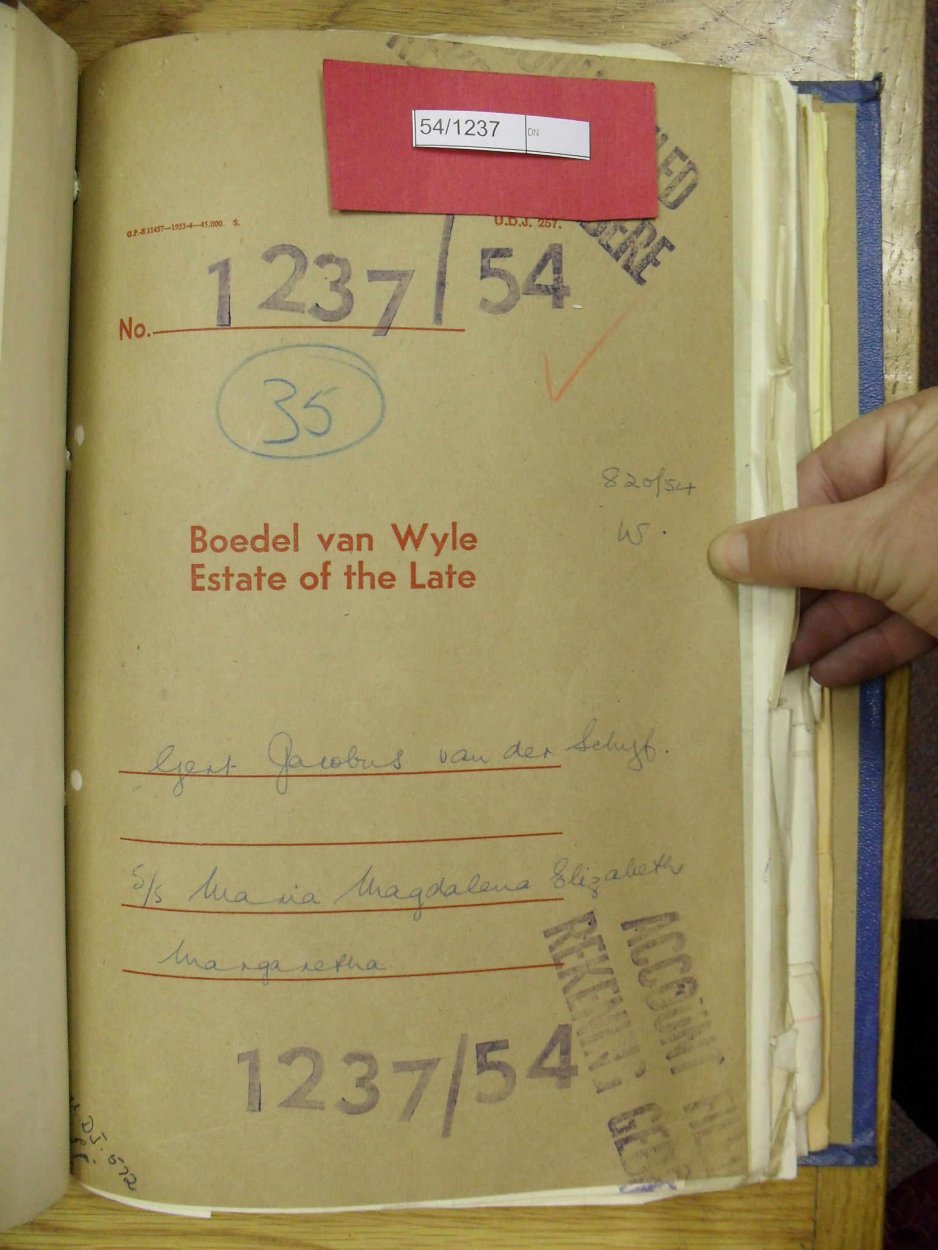 54/1237 DN
G.P.-S.11457—1953-4—45,000. S.
U.D.J. 257.
1237/54
No.
35
820/54
W.
Boedel van Wyle
Estate of the Late
Gert Jacobus van der Schyf.
S/s Maria Magdalena Elizabeth
Margaretha
ACCOUNT
REKENING
1237/54